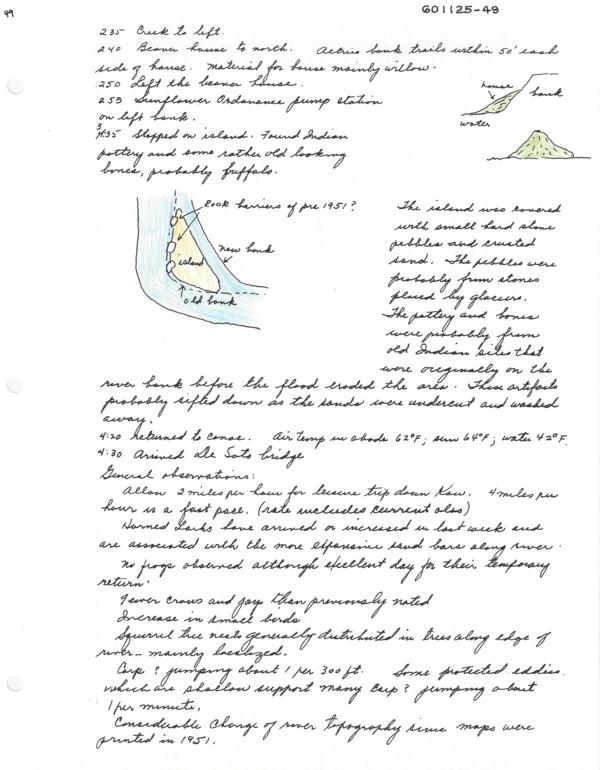 49
601125-49
235 Creek to left.
240 Beaver house to north. Active bank trails within 50' each
side of house. Material for house mainly willow.
250 Left the beaver house.
253 Sunflower Ordanance pump station
on left bank.
3:35 Stopped on island. Found Indian
pottery and some rather old looking
bones, probably buffalo.
house
bank
water
Rock barriers of pre 1951?
new bank
island
old bank
The island was covered
with small hard stone
pebbles and crusted
sand. The pebbles were
probably from stones
placed by glaciers.
The pottery and bones
were probably from
old Indian sites that
were originally on the
river bank before the flood eroded the area. These artifacts
probably sifted down as the sands were undercut and washed
away.
4:20 returned to canoe. Air temp in shade 62°F; sun 64°F; water 42°F.
4:30 Arrived De Soto bridge
General observations:
Allow 2 miles per hour for leisure trip down Kaw. 4 miles per
hour is a fast pace. (rate includes current also)
Horned Larks have arrived or increased in last week and
are associated with the more expansive sand bars along river.
No frogs observed although excellent day for their temporary
return.
Fewer crows and jays than previously noted
Increase in small birds
Squirrel tree nests generally distributed in trees along edge of
river - mainly localized.
Carp? jumping about 1 per 300 ft. Some protected eddies
which are shallow support many carp? jumping about
1 per minute.
Considerable change of river topography since maps were
printed in 1951.